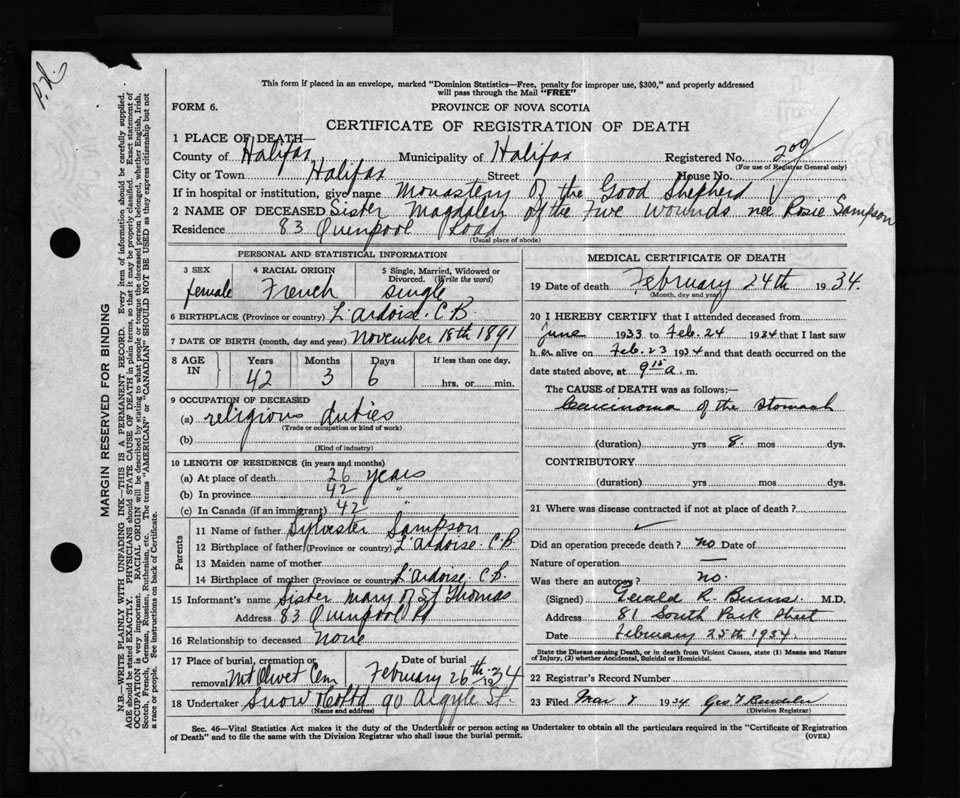 P.W.
This form if placed in an envelope, marked "Dominion Statistics—Free, penalty for improper use, $300," and properly addressed
will pass through the Mail "FREE"
FORM 6.
PROVINCE OF NOVA SCOTIA
CERTIFICATE OF REGISTRATION OF DEATH
1 PLACE OF DEATH—
County of Halifax Municipality of Halifax Registered No. 200
(For use of Registrar General only)
City or Town Halifax Street House No.
If in hospital or institution, give name Monastery Of the Good Shepherd
2 NAME OF DECEASED Sister Magdalen of the Five Wounds nee Rosie Sampson
Residence 83 Quinpool Road
(Usual place of abode)
PERSONAL AND STATISTICAL INFORMATION
3 SEX
female
4 RACIAL ORIGIN
French
5 Single, Married, Widowed or
Divorced. (Write the word)
single
6 BIRTHPLACE (Province or country) L'ardoise. C.B
7 DATE OF BIRTH (month, day and year) November 18th 1891
8 AGE IN
Years Months Days If less than one day.
42 3 6 hrs. or min.
9 OCCUPATION OF DECEASED
(a) religious duties
(Trade or occupation or kind of work)
(b)
(Kind of industry)
10 LENGTH OF RESIDENCE (in years and months)
(a) At place of death 26 years
(b) In province 42 "
(c) In Canada (if an immigrant) 42 "
Parents
11 Name of father Sylvester Sampson
12 Birthplace of father (Province or country) L'ardoise. C.B
13 Maiden name of mother
14 Birthplace of mother (Province or country) L'ardoise. C.B.
15 Informant's name Sister Mary of St Thomas
Address 83 Quinpool Rd
16 Relationship to deceased none
17 Place of burial, cremation or
removal Mt Olivet Cem
Date of burial
February 26th 1934
18 Undertaker Snow 90 Argyle St.
(Name and address)
MEDICAL CERTIFICATE OF DEATH
19 Date of death February 24th 1934.
(Month, day and year)
20 I HEREBY CERTIFY that I attended deceased from
June 1933 to Feb. 24 1934 that I last saw
her alive on Feb. 23 1934 and that death occurred on the
date stated above, at 9 15 a. m.
The CAUSE of DEATH was as follows:—
Carcinoma of the stomach
(duration) yrs 8. mos dys.
CONTRIBUTORY
(duration) yrs mos dys.
21 Where was disease contracted if not at place of death?
Did an operation precede death? no Date of
Nature of operation —
Was there an autopsy? no.
(Signed) Gerald R. Burns. M.D.
Address 81 South Park Street
Date February 25th 1934.
State the Disease causing Death, or in death from Violent Causes, state (1) Means and Nature
of Injury, (2) whether Accidental, Suicidal or Homicidal.
22 Registrar's Record Number
23 Filed Mar 7 1934 Geo T
(Division Registrar)
Sec. 46—Vital Statistics Act makes it the duty of the Undertaker or person acting as Undertaker to obtain all the particulars required in the "Certificate of Registration
of Death" and to file the same with the Division Registrar who shall issue the burial permit.
(OVER)
MARGIN RESERVED FOR BINDING
N.B.—WRITE PLAINLY WITH UNFADING INK—THIS IS A PERMANENT RECORD. Every item of information should be carefully supplied.
AGE should be stated EXACTLY. PHYSICIANS should STATE CAUSE OF DEATH in plain terms, so that it may be properly classified. Exact statement of
OCCUPATION is very important. RACIAL ORIGIN will be described by stating to what people or tongue the deceased person belonged, whether English, Irish,
Scotch, French, German, Russian, Ruthenian, etc. The terms "AMERICAN" or "CANADIAN" SHOULD NOT BE USED as they express citizenship but not
a race or people. See instructions on back of Certificate.